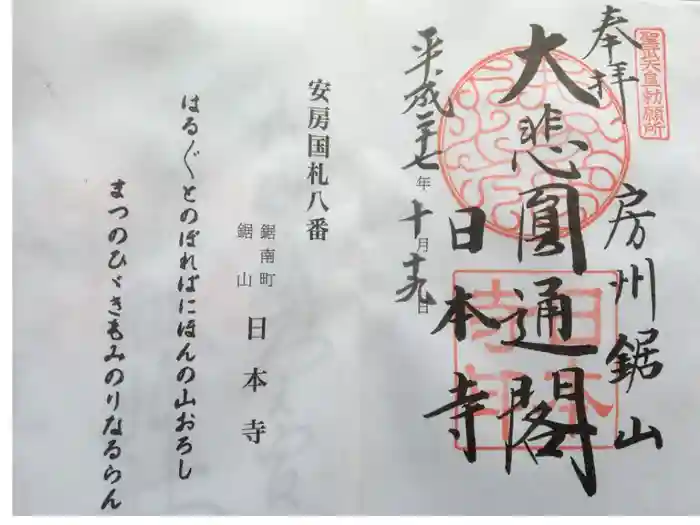 聖武天皇勅願所
奉拝
房州鋸山
大悲圓通閣
日本寺
平成二十七年十月十九日
日本寺印
安房国札八番
鋸南町
鋸山
日本寺
はる〲とのぼればにほんの山おろし
まつのひゞきもみのりなるらん